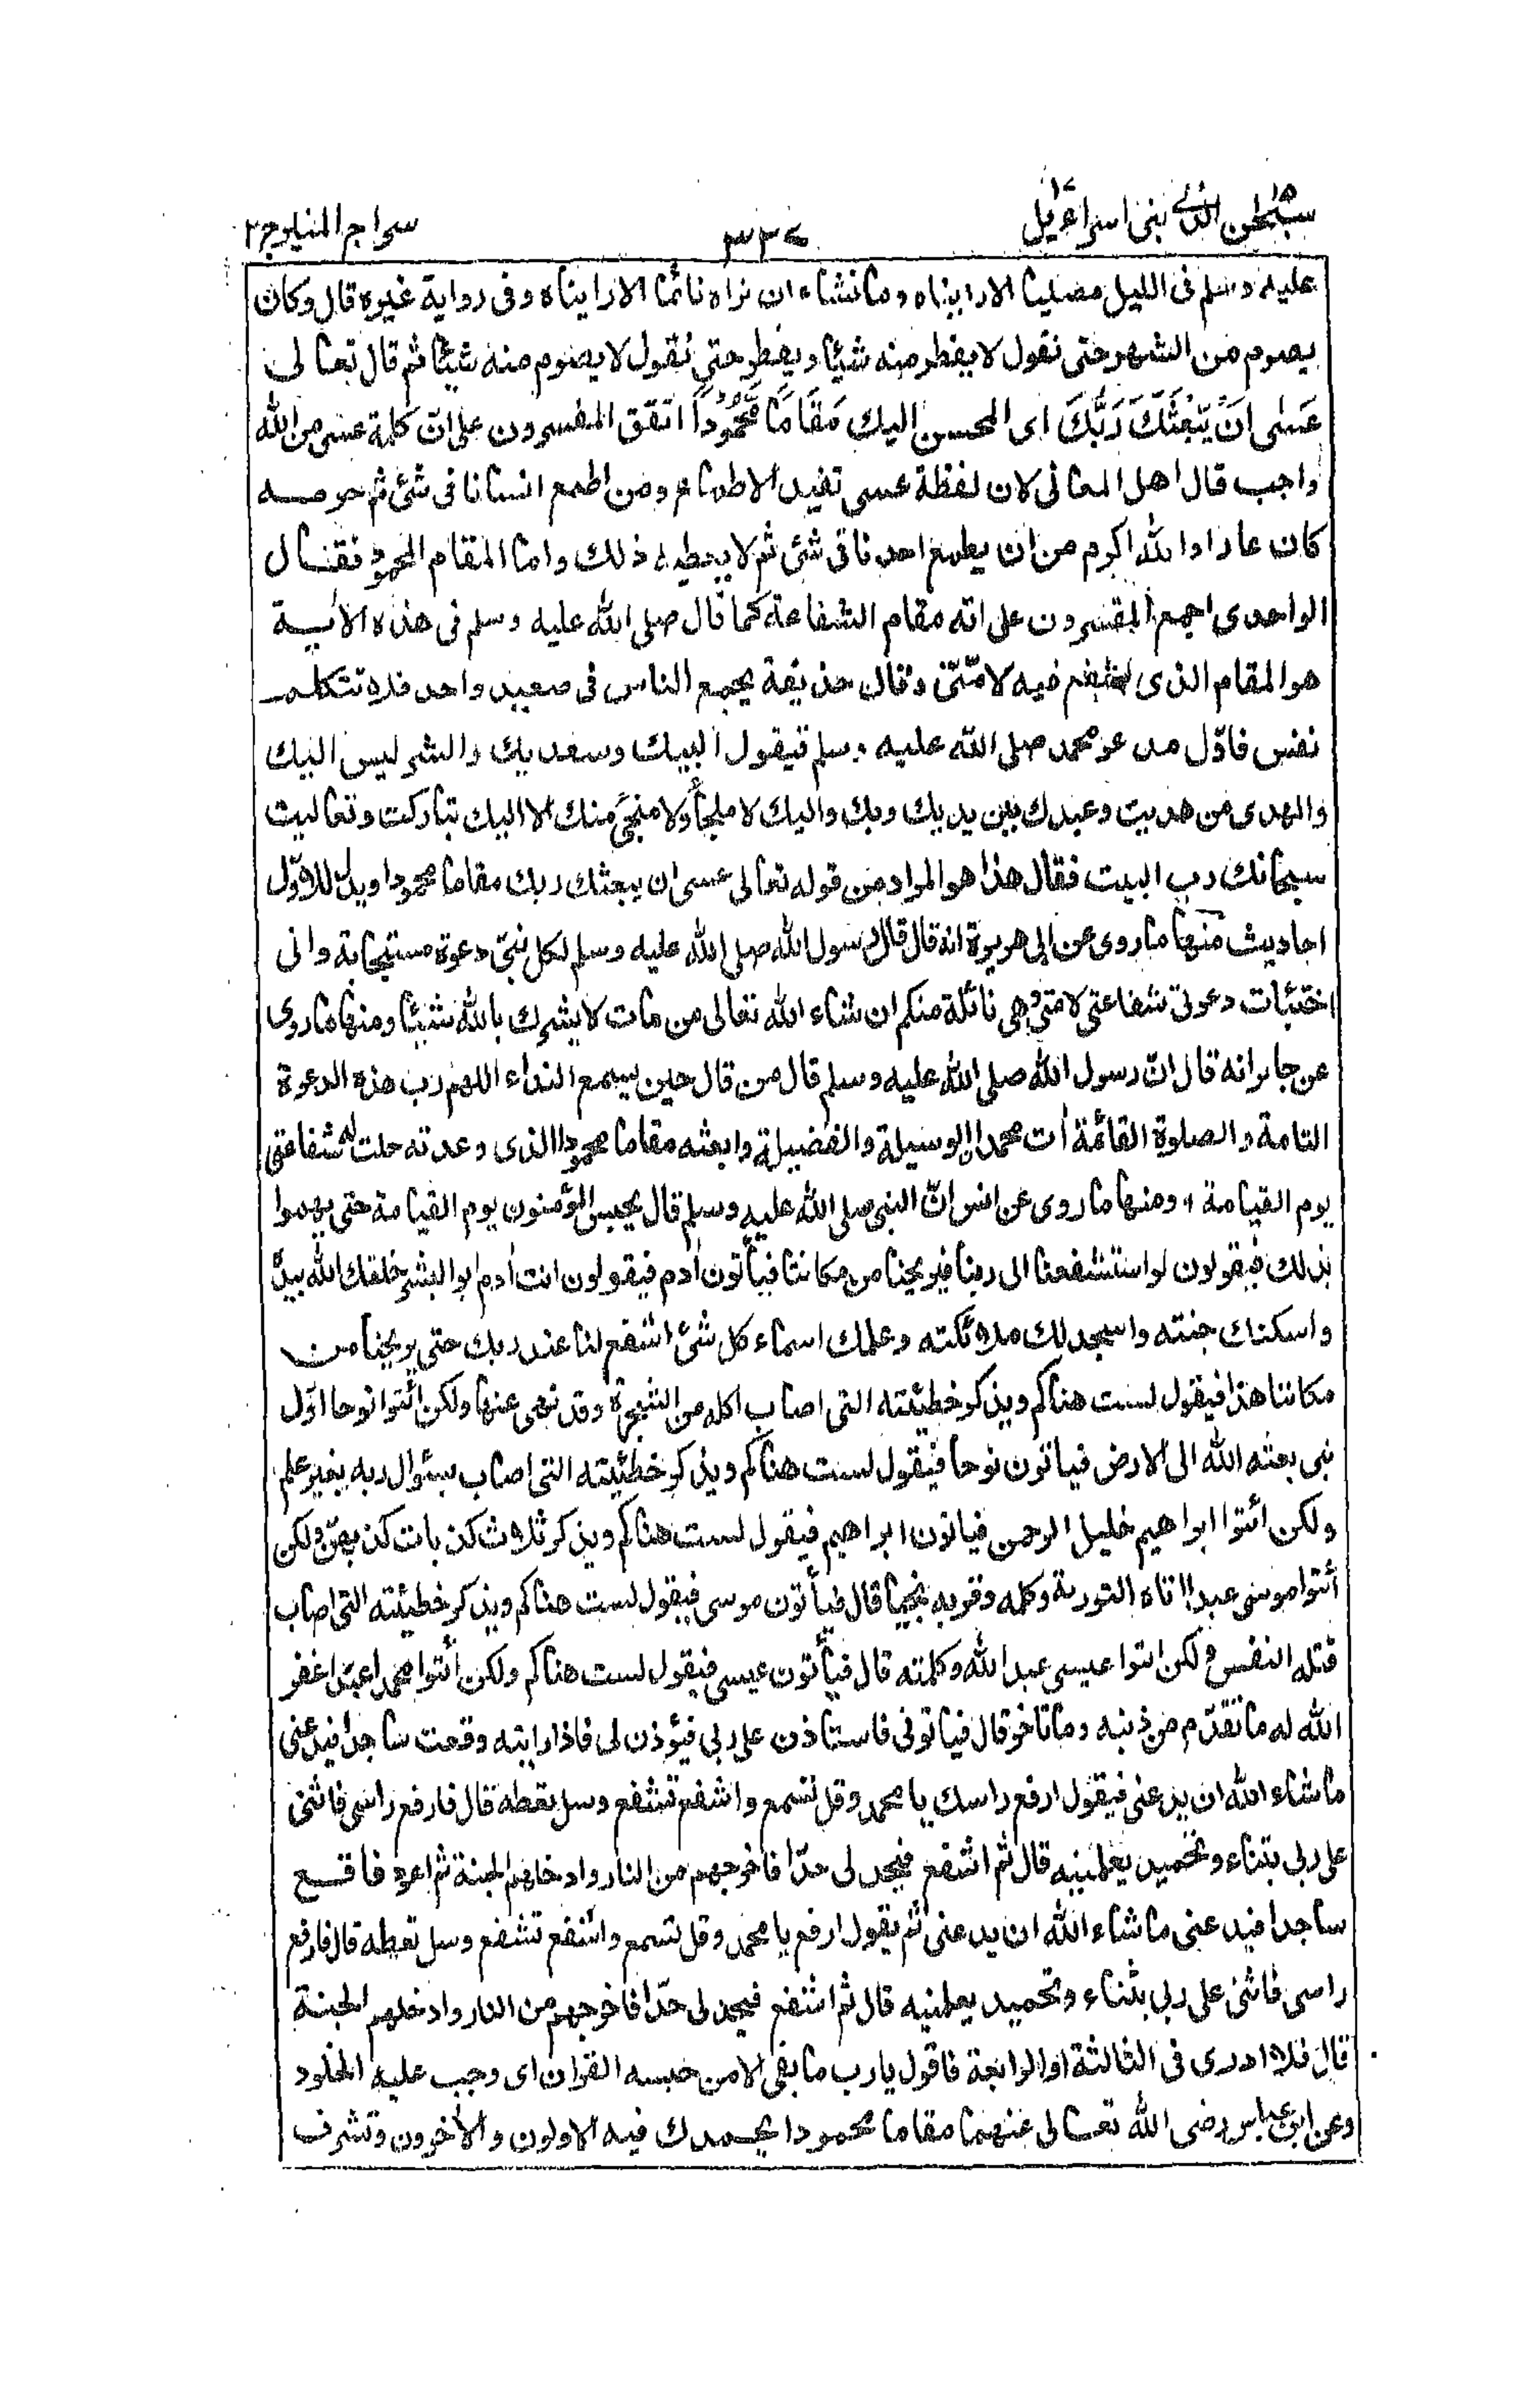 سبحٰن الذی ١٥ بنی اسراءیل ١٧
٣٣٤
سراج المنیر ج ٢
علیہ وسلم فی اللیل مصلیا الا رایناہ وما نشاء ان نراہ نائما الا رایناہ وفی روایۃ غیرہ قال وکان
یصوم من الشهر حتی نقول لا یفطر منه شیئا ویفطر حتی نقول لا یصوم منه شیئا ثم قال تعالی
عَسٰى اَنْ يَّبْعَثَكَ رَبُّكَ ای المحسن الیك مَقَامًا مَّحْمُوْدًا اتفق المفسرون علی انّ کلمة عسی من الله
واجب قال اهل المعانی لان لفظة عسی تفید الاطماع ومن اطمع انسانا فی شئ ثم حرمه
کان عارا والله اکرم من ان یطمع احدا فی شئ ثم لا یعطیه ذلك واما المقام المحمود فقال
الواحدی اجمع المفسرون علی انه مقام الشفاعة کما قال صلی الله علیه وسلم فی هذه الاٰیة
هو المقام الذی اشفع فیه لامّتی وقال حذیفة یجمع الناس فی صعید واحد فلا تتکلم
نفس فاوّل مدعو محمد صلی الله علیه وسلم فیقول لبیك وسعدیك والشر لیس الیك
والمهدی من هدیت وعبدك بین یدیك وبك والیك لا ملجأ ولا منجی منك الا الیك تبارکت وتعالیت
سبحانك رب البیت فقال هذا هو المراد من قوله تعالی عسی ان یبعثك ربك مقاما محمودا ویدل للاوّل
احادیث منها ما روی عن ابی هریرة انه قال قال رسول الله صلی الله علیه وسلم لکل نبیّ دعوة مستجابة وانی
اختبئات دعوتی شفاعتی لامتی وهی نائلة منکم ان شاء الله تعالی من مات لا یشرك بالله شیئا ومنها ما روی
عن جابر انه قال انّ رسول الله صلی الله علیه وسلم قال من قال حین یسمع النداء اللهم رب هذه الدعوة
التامة والصلوة القائمة اٰت محمدا الوسیلة والفضیلة وابعثه مقاما محمودا الذی وعدته حلت له شفاعتی
یوم القیامة ومنها ما روی عن انس انّ النبی صلی الله علیه وسلم قال یحبس المؤمنون یوم القیامة حتی یهموا
بذلك فیقولون لو استشفعنا الی ربنا فیریحنا من مکاننا فیأتون اٰدم فیقولون انت اٰدم ابو البشر خلقك الله بیده
واسکنك جنته واسجد لك ملائکته وعلمك اسماء کل شئ اشفع لنا عند ربك حتی یریحنا من
مکاننا هذا فیقول لست هناکم ویذکر خطیئته التی اصاب اکله من الشجرة وقد نهی عنها ولکن ائتوا نوحا اوّل
نبی بعثه الله الی الارض فیاتون نوحا فیقول لست هناکم ویذکر خطیئته التی اصاب سؤال ربه بغیر علم
ولکن ائتوا ابراهیم خلیل الرحمن فیاتون ابراهیم فیقول لست هناکم ویذکر ثلاث کذبات کذبهنّ ولکن
أئتوا موسی عبدا اتاه التورىة وکلمه وقربه نجیا قال فیأتون موسی فیقول لست هناکم ویذکر خطیئته التی اصاب
قتله النفس ولکن ائتوا عیسی عبد الله وکلمته قال فیأتون عیسی فیقول لست هناکم ولکن أئتوا محمدا عبدا غفر
الله له ما تقدّم من ذنبه وما تاخر قال فیاتونی فاستاذن علی ربی فیؤذن لی فاذا رایته وقعت ساجدا فیدعنی
ما شاء الله ان یدعنی فیقول ارفع راسك یا محمد وقل تسمع واشفع تشفع وسل تعطه قال فارفع راسی فاثنی
علی ربی بثناء وتحمید یعلمنیه قال ثم اشفع فیحد لی حدّا فاخرجهم من النار وادخلهم الجنة ثم اعود فاقع
ساجدا فیدعنی ما شاء الله ان یدعنی ثم یقول ارفع یا محمد وقل تسمع واشفع تشفع وسل تعطه قال فارفع
راسی فاثنی علی ربی بثناء وتحمید یعلمنیه قال ثم اشفع فیحد لی حدّا فاخرجهم من النار وادخلهم الجنة
قال فلا ادری فی الثالثة او الرابعة فاقول یارب ما بقی الا من حبسه القرٰان ای وجب علیه الخلود
وعن ابن عباس رضی الله تعالی عنهما مقاما محمودا یحمدك فیه الاولون والاٰخرون وتشرف